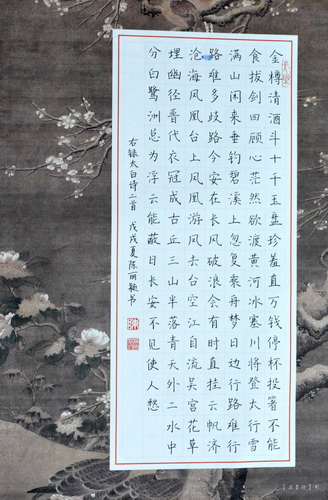 金樽清酒斗十千玉盘珍羞直万钱停杯投箸不能
食拔剑四顾心茫然欲渡黄河冰塞川将登太行雪
满山闲来垂钓碧溪上忽复乘舟梦日边行路难行
路难多歧路今安在长风破浪会有时直挂云帆济
沧海凤凰台上凤凰游凤去台空江自流吴宫花草
埋幽径晋代衣冠成古丘三山半落青天外二水中
分白鹭洲总为浮云能蔽日长安不见使人愁
右录太白诗二首 戊戌夏陈丽颖书